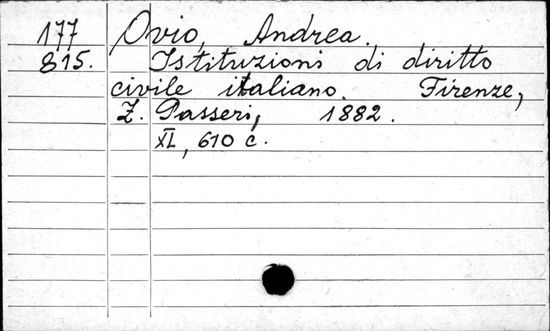 177 Ovio, Andrea.
815. Istituzioni di diritto
civile italiano. Firenze,
Z. Passeri, 1882.
XI, 610 c.